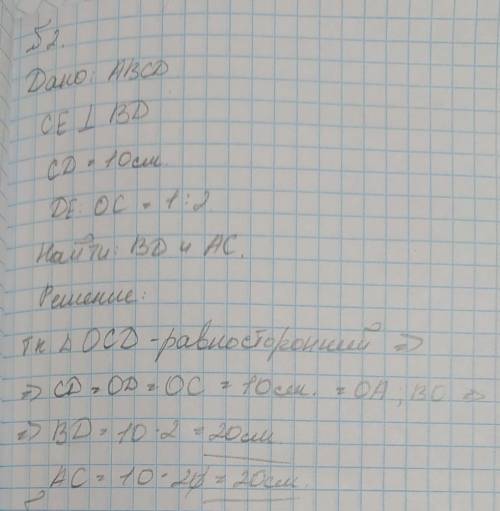 №2.
Дано: ABCD
CE ⊥ BD
CD = 10см.
DE:OC = 1:2
Найти: BD и AC.
Решение:
тк Δ OCD - равносторонний ⇒
⇒ CD = OD = OC = 10см. = OA ; BO ⇒
⇒ BD = 10 · 2 = 20см
AC = 10 · 2 = 20см.